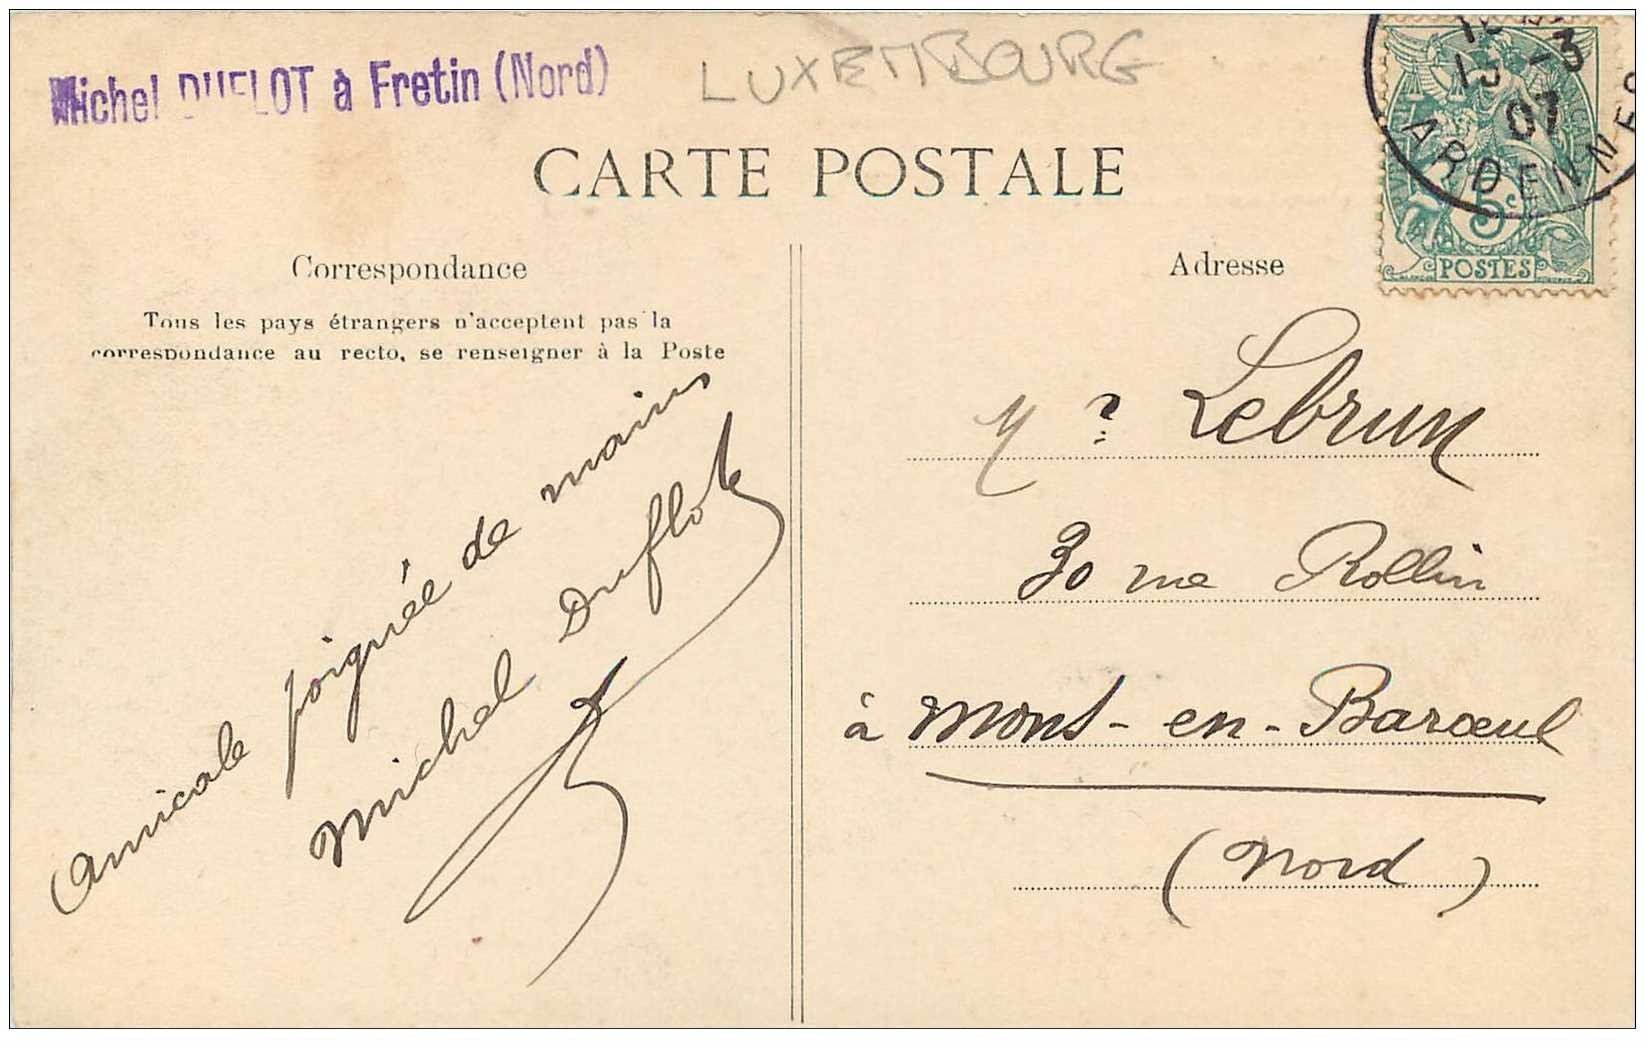 Michel DUFLOT à Fretin (Nord)
LUXEMBOURG
CARTE POSTALE
-3
07
ARDENNES
5c
POSTES
Correspondance
Tous les pays étrangers n'acceptent pas la
correspondance au recto, se renseigner à la Poste
Adresse
Amicale poignée de mains
Michel Duflot
Mr Lebrun
30 rue Rollin
à Mons-en-Barœul
(Nord)